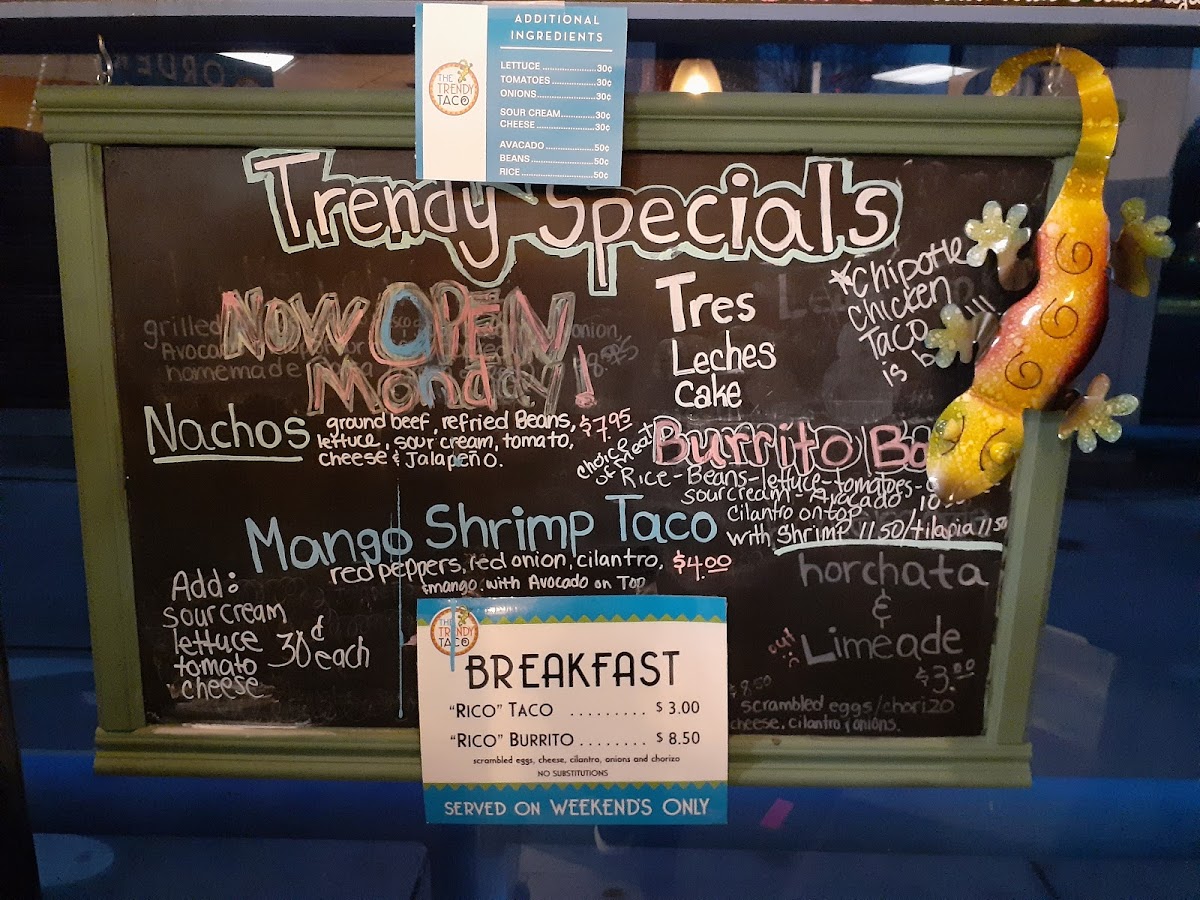 ADDITIONAL
INGREDIENTS
THE
TRENDY
TACO
LETTUCE ..................... 30¢
TOMATOES ................. 30¢
ONIONS ...................... 30¢
SOUR CREAM ............. 30¢
CHEESE ...................... 30¢
AVACADO ................... 50¢
BEANS ........................ 50¢
RICE ........................... 50¢
Trendy Specials
NOW OPEN
Monday!
grilled onion,
Avocado
homemade 8.95
Tres
Leches
Cake
*Chipotle
chicken
Taco
is b
Nachos
ground beef, refried Beans, $7.95
lettuce, sour cream, tomato,
cheese & Jalapeño.
choice
of meat
Burrito Bo
Rice-Beans-lettuce-tomatoes-
sourcream-Avocado, 10
Cilantro on top
with Shrimp 11 50/tilapia 11 50
Mango Shrimp Taco
red peppers, red onion, cilantro, $4.00
&mango. with Avocado on Top
Add:
sour cream
lettuce
tomato
cheese
30¢ each
horchata
&
Limeade
out
$3.00
$8.50
scrambled eggs/chorizo
cheese, cilantro & onions.
THE
TRENDY
TACO
BREAKFAST
"RICO" TACO ......... $3.00
"RICO" BURRITO ........ $8.50
scrambled eggs, cheese, cilantro, onions and chorizo
NO SUBSTITUTIONS
SERVED ON WEEKEND'S ONLY